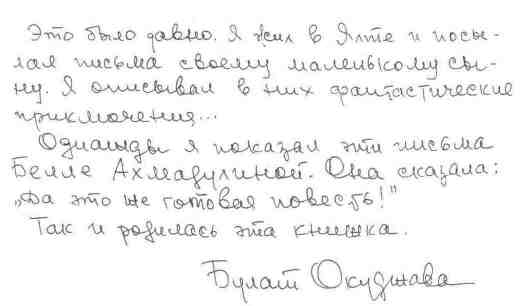 Это было давно. Я жил в Ялте и посы-
лал письма своему маленькому сы-
ну. Я описывал в них фантастические
приключения...
Однажды я показал эти письма
Белле Ахмадулиной. Она сказала:
„Да это же готовая повесть!"
Так и родилась эта книжка.
Булат Окуджава